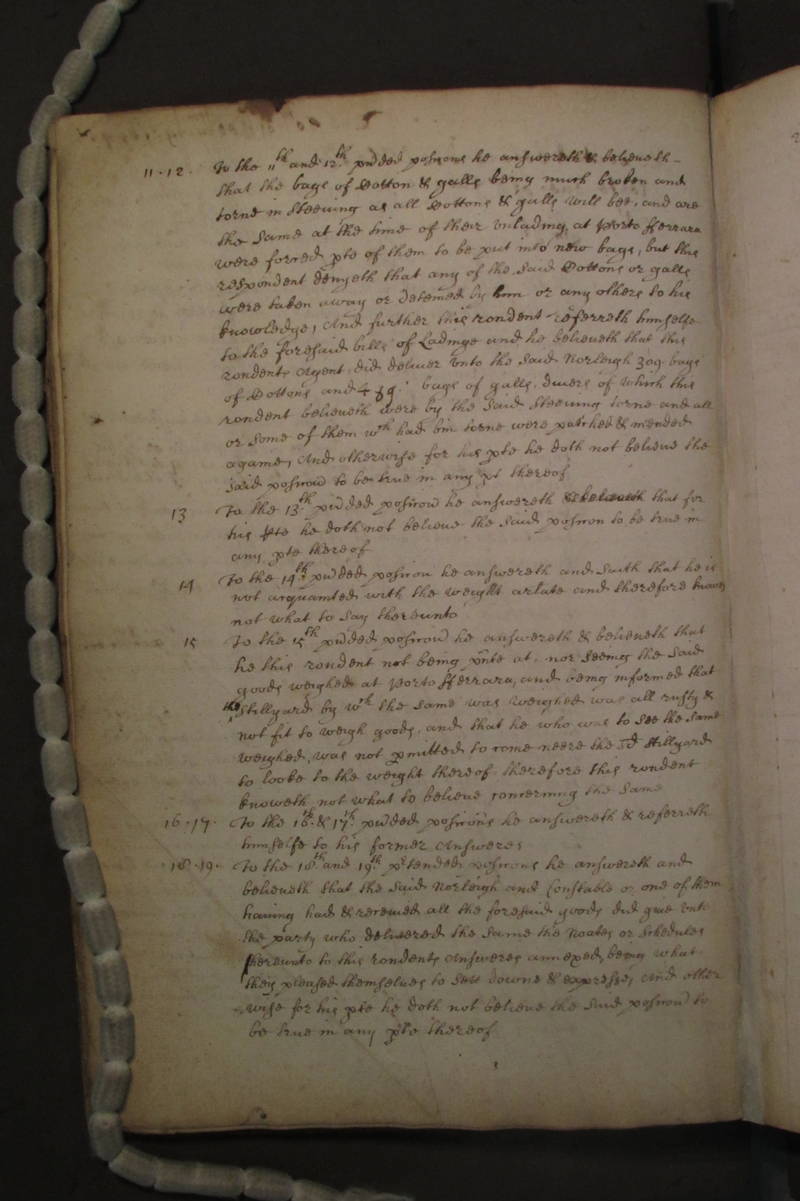 11 . 12 . To the 11th and 12th. pnded posicons he answereth & beleiueth
that the bags of Cotton & galls being much broken and
torne in Steeuing as all Cottons & galls will bee, and are
the same at the time of their vnlading, at Porto fferrara
were forced pte of them to be put into new bags, but this
respondent denyeth that any of the said Cottons or galls
were taken away or deteined by him or any others to his
knowledge, And further this rondent referreth himselfe
to the foresaid bills of Ladinge and he beleiueth that this
rondents Agent did deliuer vnto the said Norleigh 309 bags
of Cottons and bags of galls, diuers of which this
rondent beleiueth were by the said steeuing torne and all
or some of them wch had bin torne were patched & mended
againe, And otherwise for his pte he doth not beleiue the
said posicon to be true in any pt thereof
13 To the 13th pnded posicon he answereth & beleiueth that for
his pte he doth not beleiue the said posicon to be true in
any pte thereof
14 To the 14th pnded posicon he answereth and saith that he is
not acquainted with the weight arlate and therefore knowes
not what to say thereunto
15 To the 15th pnded posicon he answereth & beleiueth that
he this rondent not being pnte at, nor seeing the said
goods weighed at Porto fferrara, and being informed that
the Stillyard by wch the same was weighed was all rusty &
not fit to weigh goods, and that he who was to see the same
weighed, was not pmitted to come neere the sd stillyard
to looke to the weight thereof therefore this rondent
knoweth not what to beleiue concerning the same
16 . 17 . To the 16th. & 17th. pnded posicons he answereth & referreth
himselfe to his former Answeres
18 . 19 . To the 18th and 19th. ptended posicons he answereth and
beleiueth that the said Norleigh and Constable or one of them
hauing had & receiued all the foresaid goods did giue vnto
the party who deliuered the same the Noates or Schedules
hereunto to this rondents Answeres annexed, being what
they pleased themselues to sett downe & expresse, And other
wise for his pte he doth not beleiue the said posicon to
be true in any pte thereof